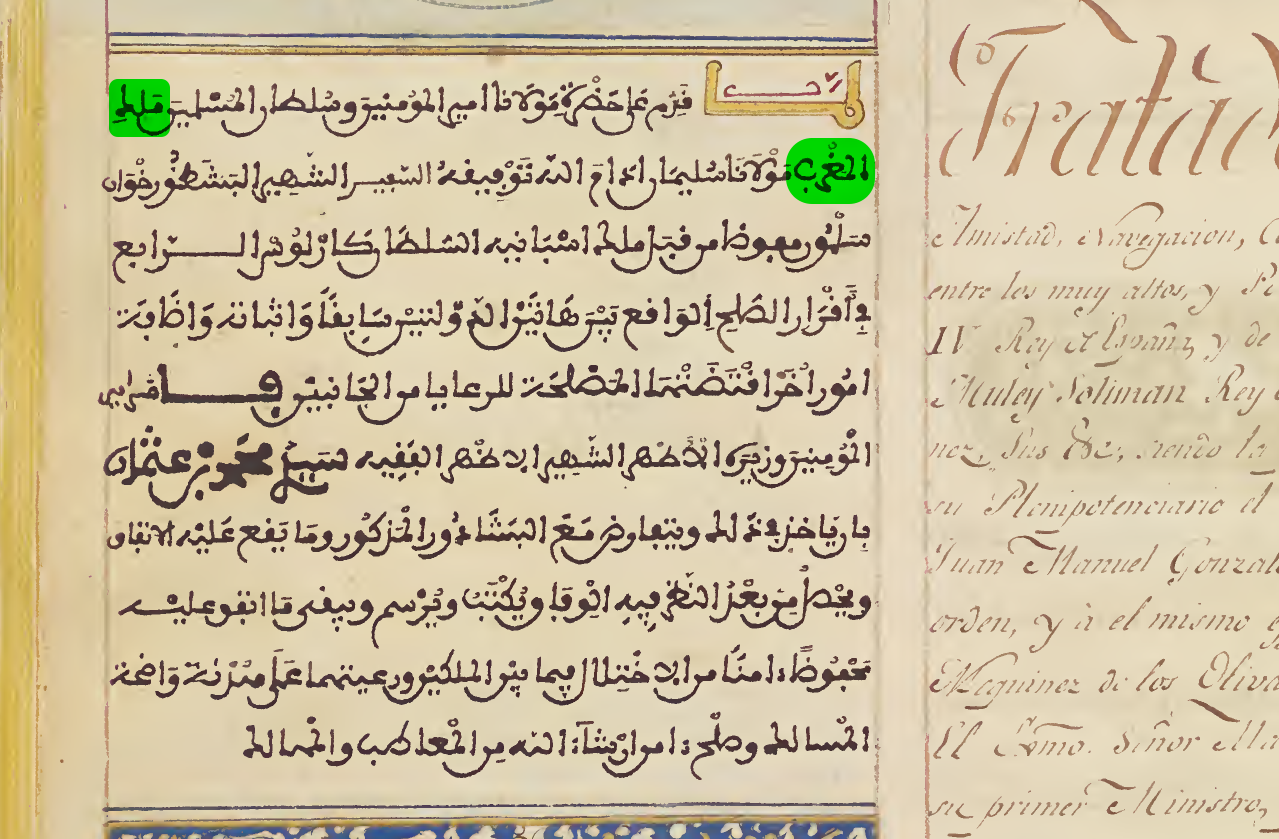 لما قدم على حضرة مولانا امير المؤمنين وسلطان المسلمين ملك
المغرب مولانا سليمان ادام الله توفيقه السفير الشهير البشظور خوان
منلور مبعوظا من قبل ملك اسبانيه السلطان كارلوش الرابع
في إقرار الصلح الواقع بين هاتين الدولتين سابقا واثباته واظافة
امور اخرا اقتضتها المصلحة للرعايا من الجانبين فامر امير
المؤمنين وزيره الاظهر الشهير الاظهر الفقيه السيد محمد بن عثمان
بان ياخذ في ذلك ويتفاوض مع البشاذور المذكور وما يقع عليه الاتفاق
ويحصل من بعد النظر فيه الوفا ويكتب ويرسم ويبقى ما اتفق عليه
محفوظا دامنا من الاختلال فيما بين الملكين ورعيتهما على منزلة واضحة
المسالك وصلح دامر ان شآء الله من المعاطب والمهالك
Tratad
Amistad, Navegacion, C
entre los muy altos, y Po
IV Rey de España, y de
Muley Soliman Rey
nez, Sus &c, siendo la
su Plenipotenciario el
Juan Manuel Gonzal
orden, y à el mismo
Mequinez de los Oliva
El Exmo. Señor
su primer Ministro,